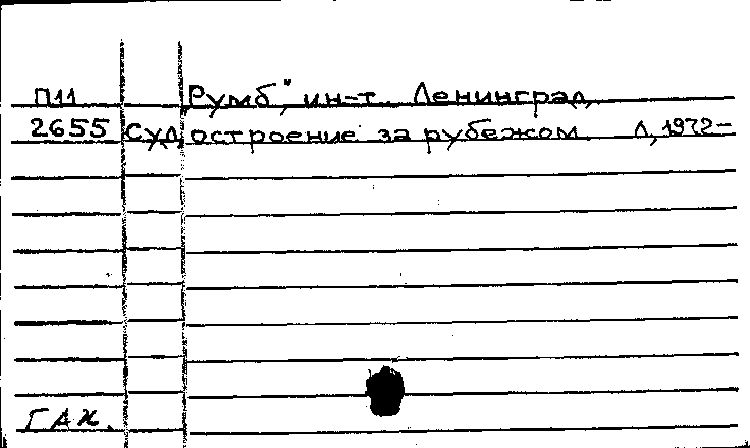 П11 Румб", ин-т. Ленинград,
2655 Судостроение за рубежом. Л, 1972-
ГАК.